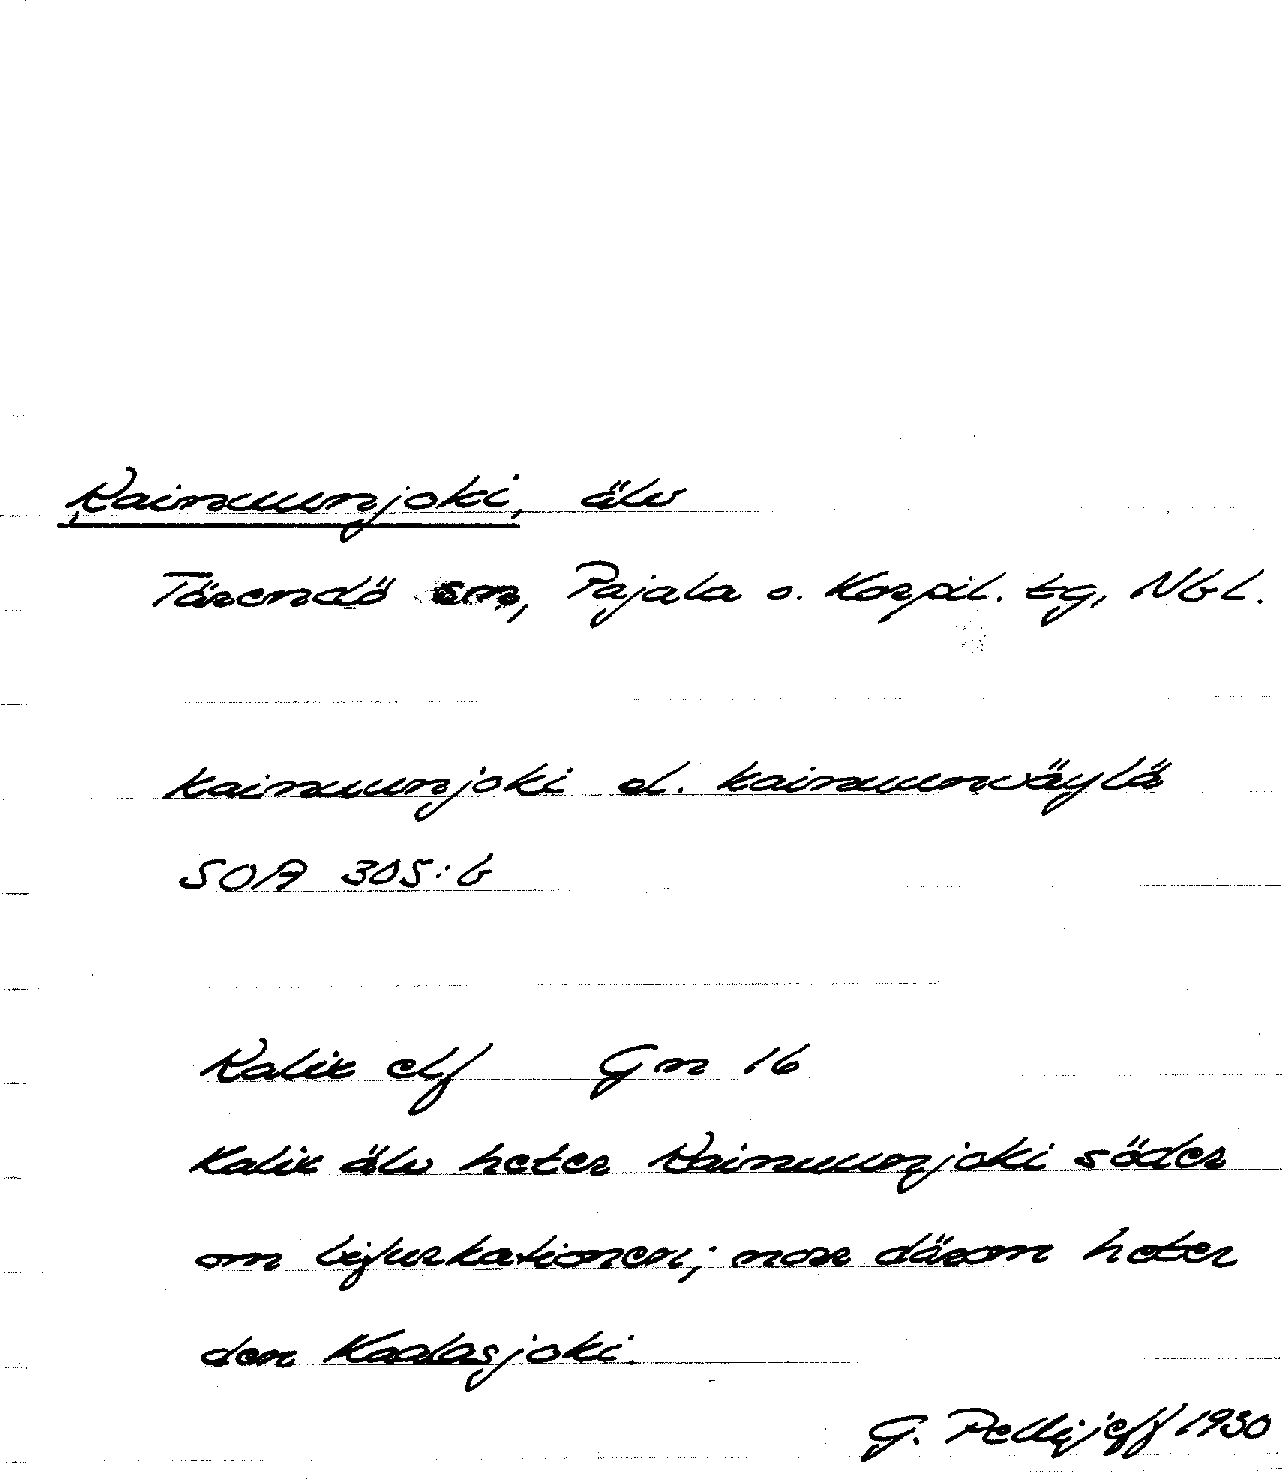 Kainuunjoki, älv
Tärendö sn, Pajala o. Korpil. tg, Nbl.
kainuunjoki el. kainuunväylä
SOA 305:6
Kalix elf Gn 16
Kalix älv heter Kainuunjoki söder
om bifurkationen; norr därom heter
den Kaalasjoki.
G. Pellijeff 1930